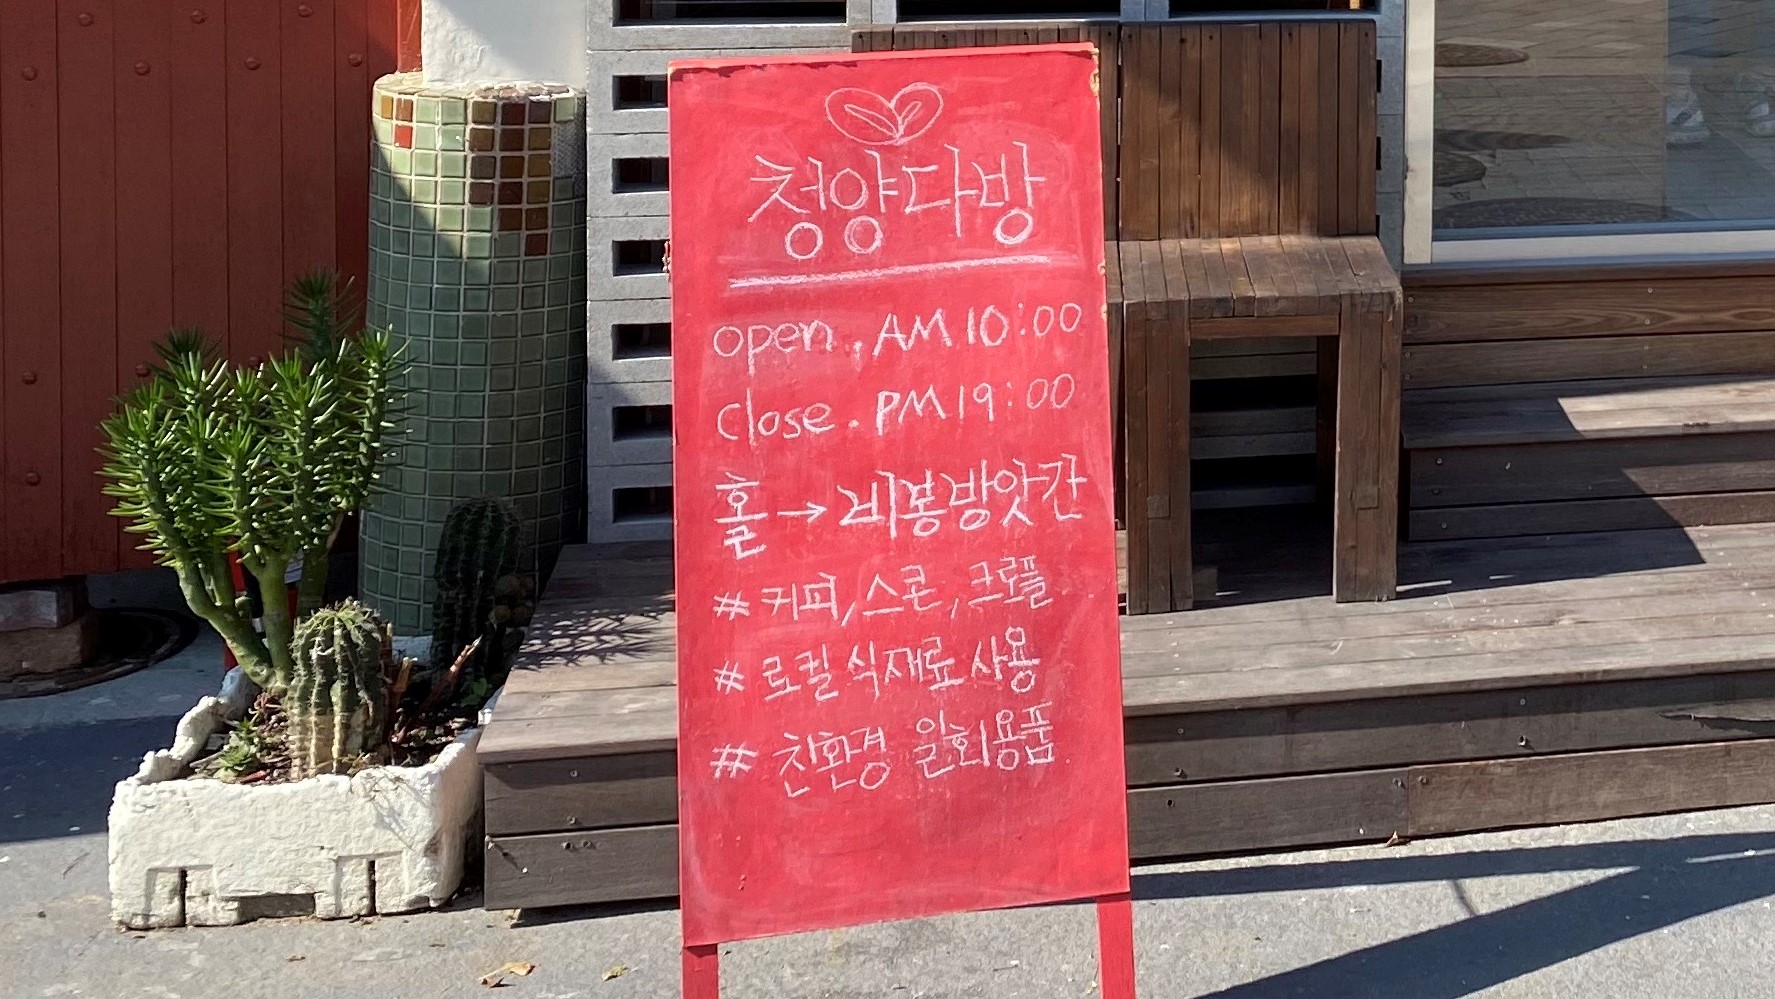 청양다방
open., AM 10:00
close. PM 19:00
홀→비봉방앗간
# 커피, 스콘, 크로플
# 로컬 식재료 사용
# 친환경 일회용품